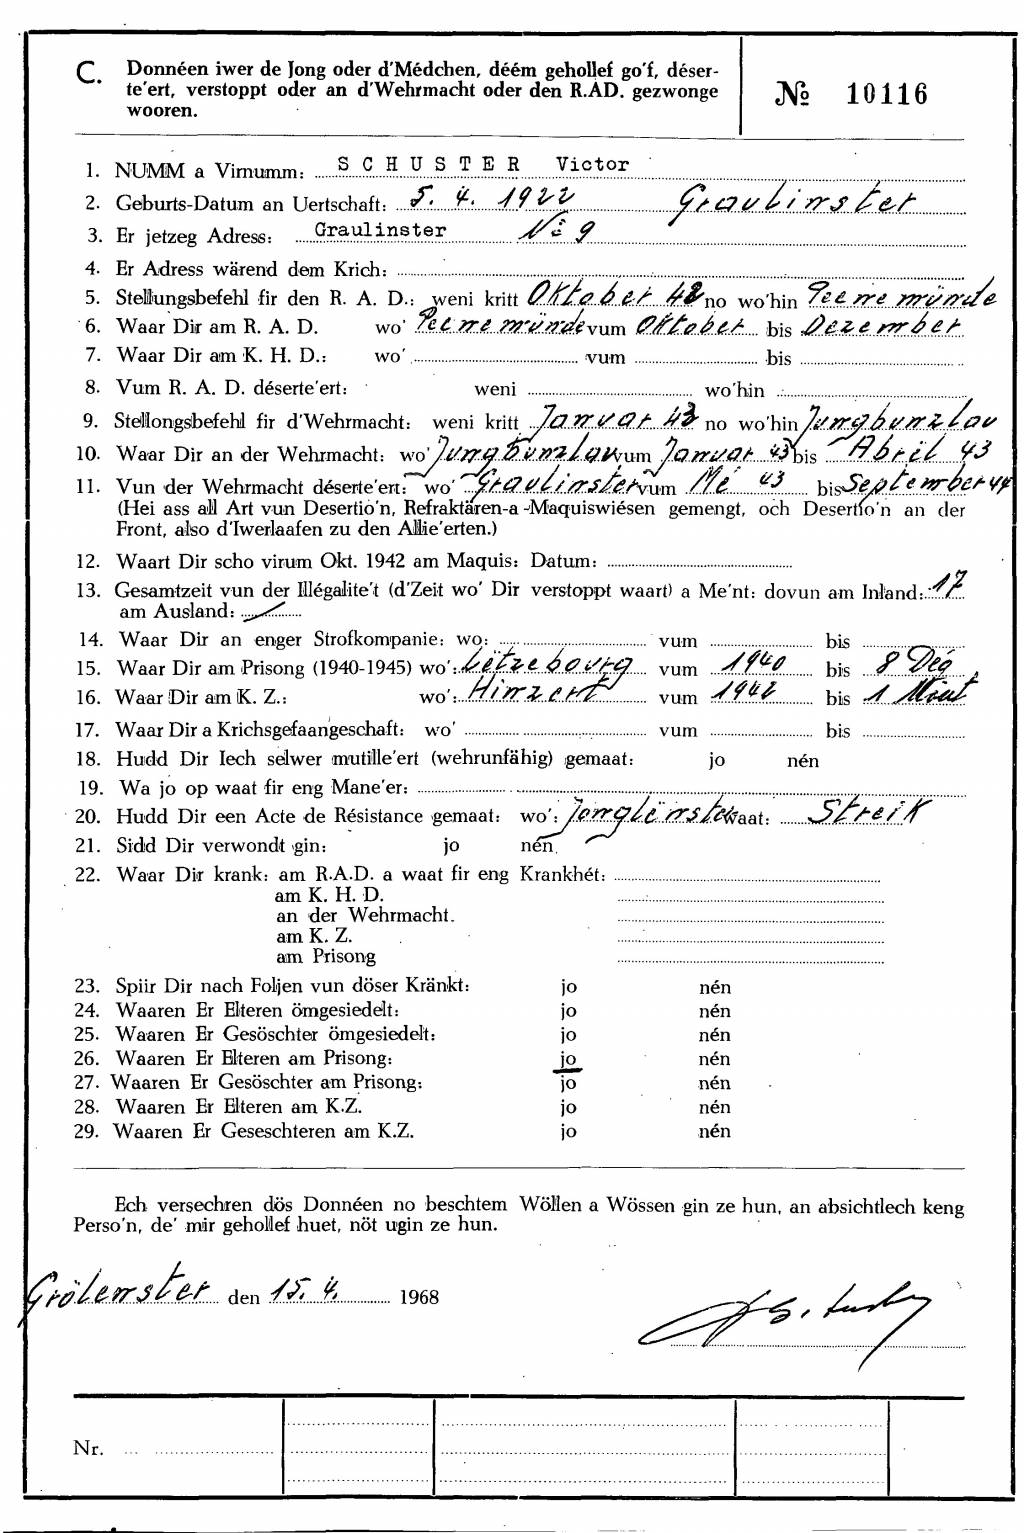 C. Donnéen iwer de Jong oder d'Médchen, déém gehollef go'f, déser-
te'ert, verstoppt oder an d'Wehrmacht oder den R.AD. gezwonge
wooren.
№ 10116
1. NUMM a Virnumm: SCHUSTER Victor
2. Geburts-Datum an Uertschaft: 5. 4. 1922 Graulinster
3. Er jetzeg Adress: Graulinster № 9
4. Er Adress wärend dem Krich:
5. Stellungsbefehl fir den R. A. D.: weni kritt Oktober 42 no wo'hin Peenemünde
6. Waar Dir am R. A. D. wo' Peenemünde vum Oktober bis Dezember
7. Waar Dir am K. H. D.: wo' vum bis
8. Vum R. A. D. déserte'ert: weni wo'hin
9. Stellongsbefehl fir d'Wehrmacht: weni kritt Januar 43 no wo'hin Jungbunzlau
10. Waar Dir an der Wehrmacht: wo' Jungbunzlau vum Januar 43 bis Abril 43
11. Vun der Wehrmacht déserte'ert: wo' Graulinster vum Mé 43 bis September 44
(Hei ass all Art vun Desertio'n, Refraktären-a-Maquiswiésen gemengt, och Desertio'n an der
Front, also d'Iwerlaafen zu den Allie'erten.)
12. Waart Dir scho virum Okt. 1942 am Maquis: Datum:
13. Gesamtzeit vun der Illégalite't (d'Zeit wo' Dir verstoppt waart) a Me'nt: dovun am Inland: 17
am Ausland: /
14. Waar Dir an enger Strofkompanie: wo: vum bis
15. Waar Dir am Prisong (1940-1945) wo': Lëtzebourg vum 1940 bis 8 Deg
16. Waar Dir am K. Z.: wo': Hinzert vum 1942 bis 1
17. Waar Dir a Krichsgefaangeschaft: wo' vum bis
18. Hudd Dir Iech selwer mutille'ert (wehrunfähig) gemaat: jo nén
19. Wa jo op waat fir eng Mane'er:
20. Hudd Dir een Acte de Résistance gemaat: wo': Jonglënster waat: Streik
21. Sidd Dir verwondt gin: jo nén
22. Waar Dir krank: am R.A.D. a waat fir eng Krankhét:
am K. H. D.
an der Wehrmacht.
am K. Z.
am Prisong
23. Spiir Dir nach Foljen vun döser Kränkt: jo nén
24. Waaren Er Elteren ömgesiedelt: jo nén
25. Waaren Er Gesöschter ömgesiedelt: jo nén
26. Waaren Er Elteren am Prisong: jo nén
27. Waaren Er Gesöschter am Prisong: jo nén
28. Waaren Er Elteren am K.Z. jo nén
29. Waaren Er Geseschteren am K.Z. jo nén
Ech versechren dös Donnéen no beschtem Wöllen a Wössen gin ze hun, an absichtlech keng
Perso'n, de' mir gehollef huet, nöt ugin ze hun.
Grölenster den 15. 4. 1968
Nr.